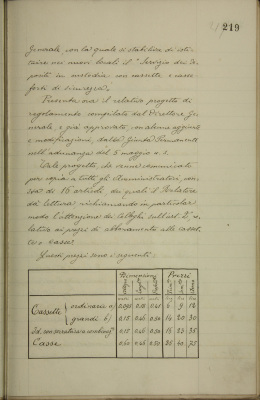 219
Generale, con la quale si stabilisce di isti-
tuire nei nuovi locali il "Servizio dei de-
positi in custodia con cassette e casse
forti di sicurezza".
Presenta ora il relativo progetto di
regolamento compilato dal Direttore Ge-
nerale e già approvato, con alcune aggiunte
e modificazioni, dalla Giunta Permanente
nell'adunanza del 5 maggio
Dale progetto, che venne comunicato
per copia a tutti gli Amministratori, con-
sta di 16 articoli dei quali il Relatore
dà lettura richiamando in particolar
modo l'attenzione dei Colleghi sull'art. 2°, re-
lativo ai prezzi di abbonamento alle casset-
te e casse.
Questi prezzi sono i seguenti:
Dimensioni Prezzi
Cassette ordinarie a) 6 9 12
grandi b) 0.15 0.46 0.50 20 30
0.15 0.46 0.50 15 25 35
Casse 0.60 0.46 0.50 40 75